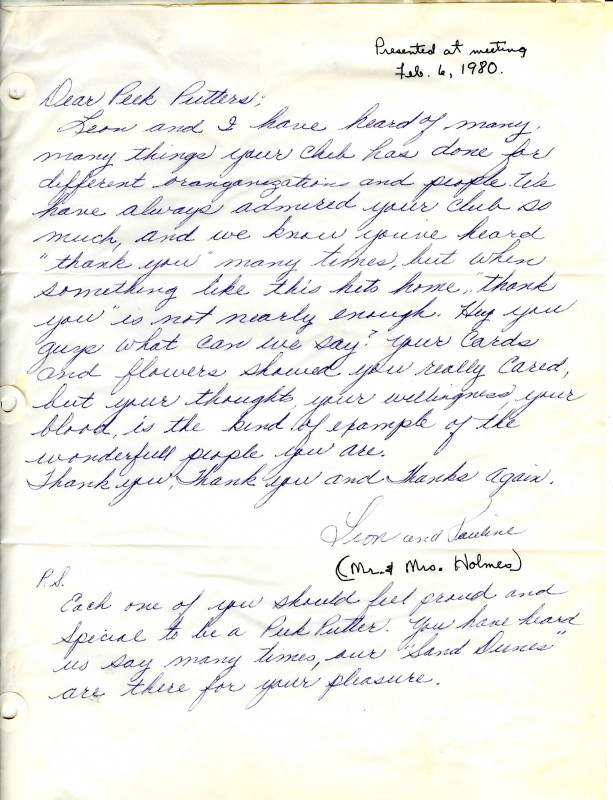 Presented at meeting
Feb. 6, 1980.
Dear Peek Putters;
Leon and I have heard of many,
many things your club has done for
different oranganizations and people. We
have always admired your club so
much, and we know you've heard
"thank you" many times, but when
something like this hits home, "thank
you" is not nearly enough. Hey you
guys what can we say? Your Cards
and flowers showed you really Cared,
but your thoughts, your willingness, your
blood, is the kind of example of the
wonderfull people you are.
Thank you, Thank you and Thanks Again.
Leon and Pauline
(Mr. & Mrs. Holmes)
P.S.
Each one of you should feel proud and
Special to be a Peek Putter. You have heard
us say many times, our "Sand Dunes"
are there for your pleasure.